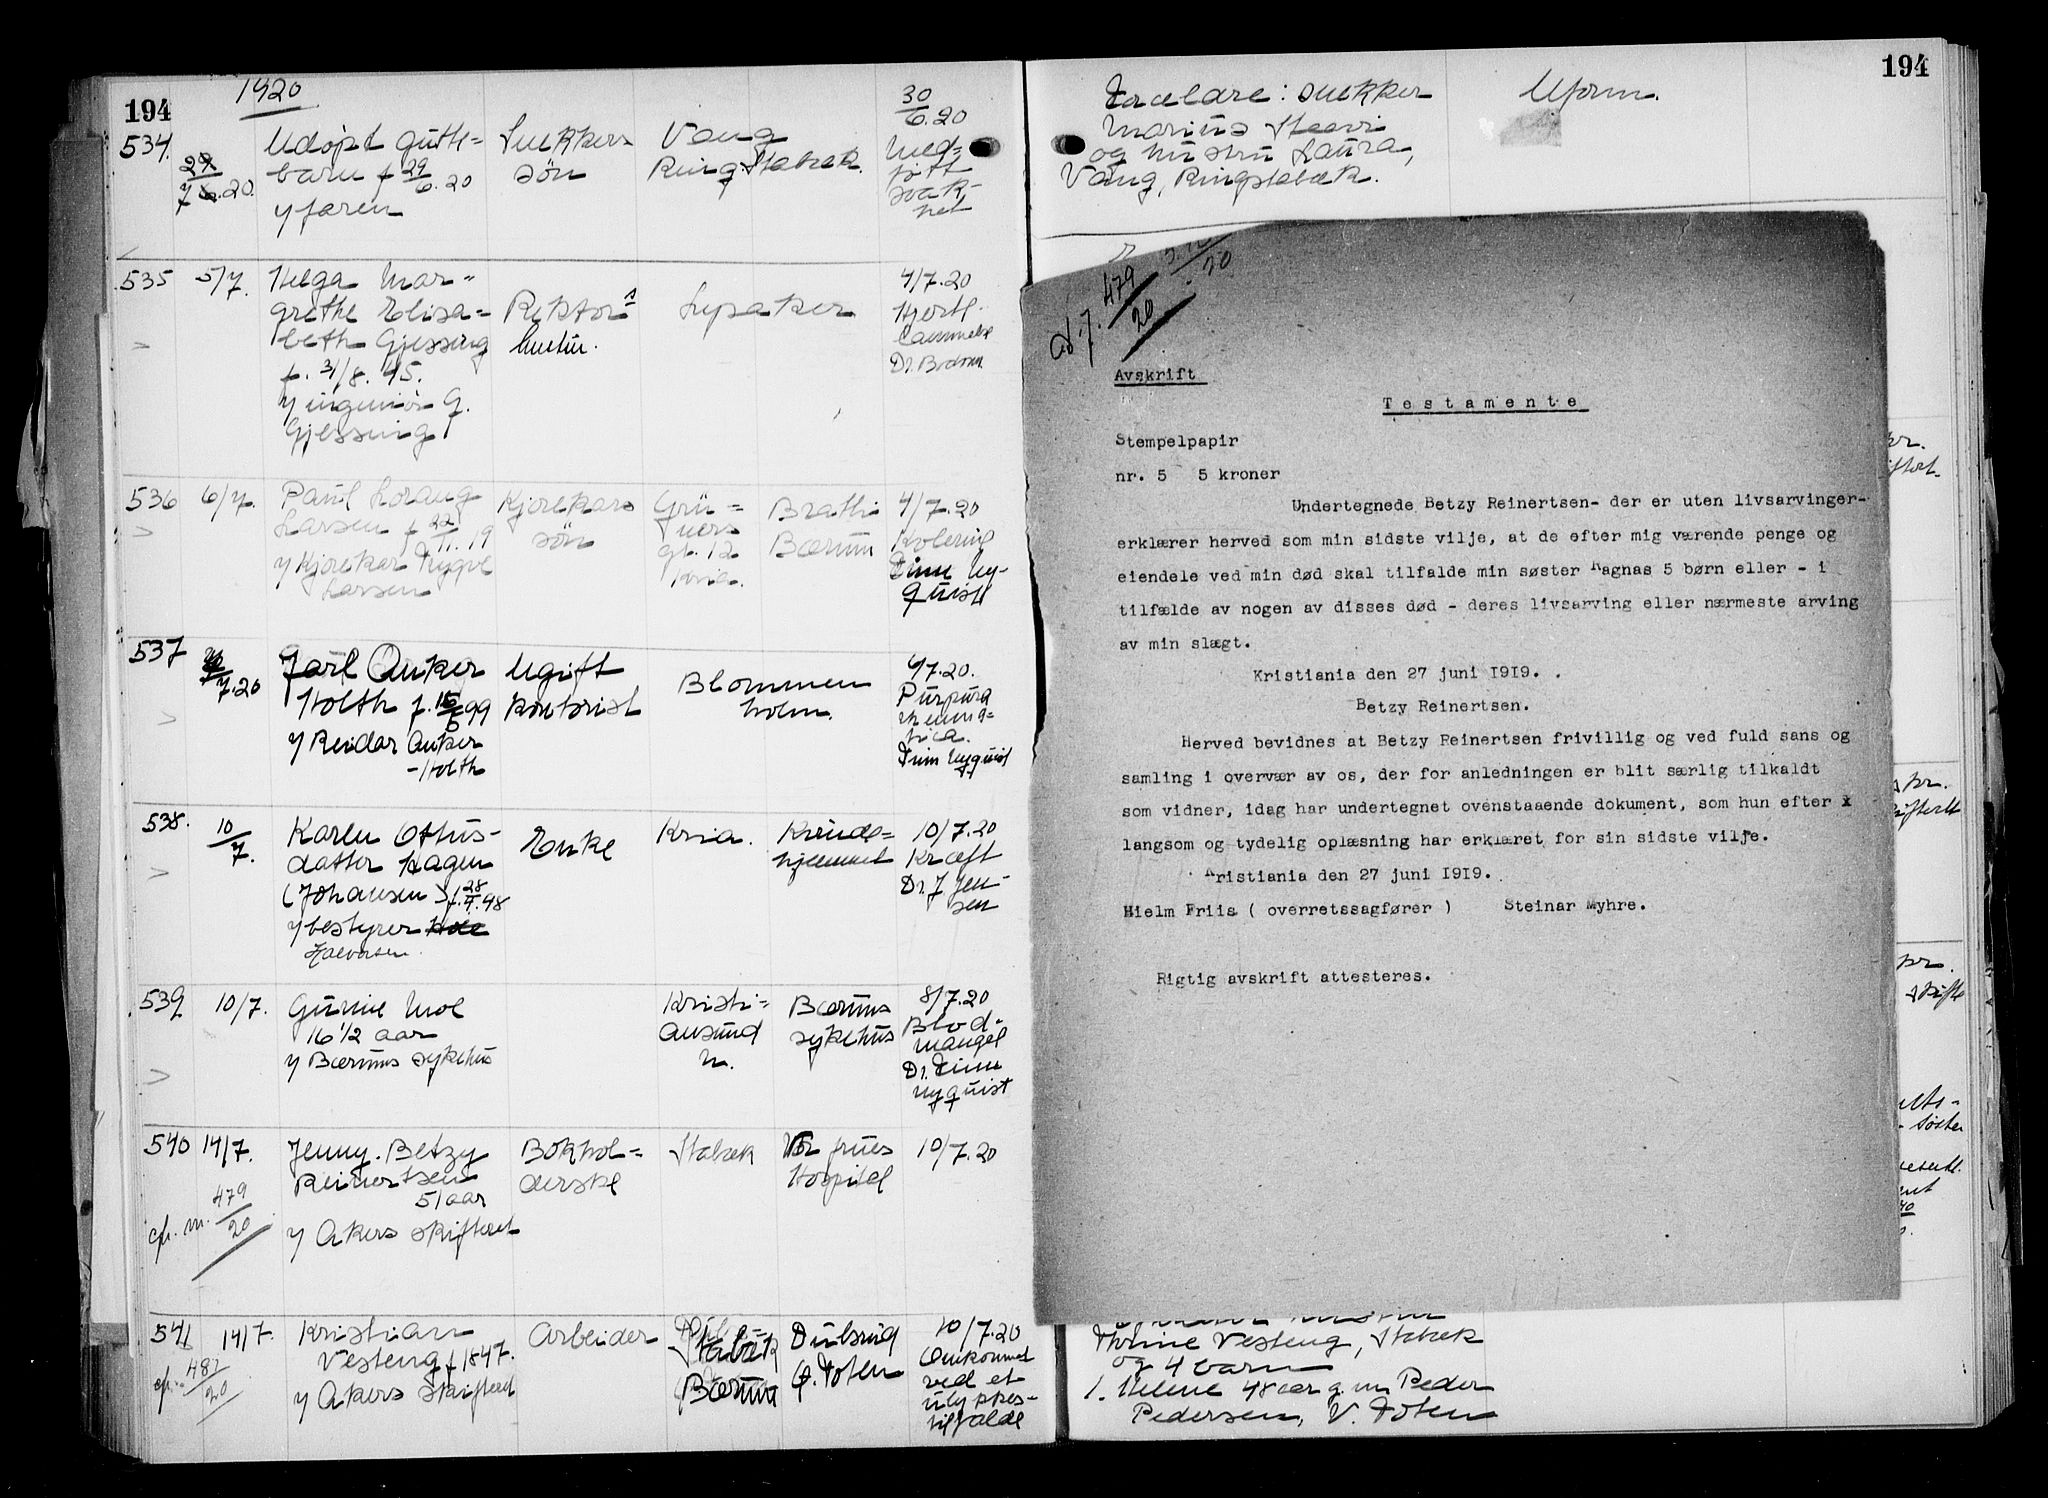 194
1920
534.
29/6.20.
7
Udøpt gutte-
barn f 29/6.20
γ faren
Snekkers
søn
Vang
Ringstabæk
30/6.20
Medfött
svak-
het
535
5/7.
Helga Mar-
grethe Elisa-
beth Gjessing
f. 31/8.45.
γ ingeniör G.
Gjessing
Rektors
hustru.
Lysaker
4/7.20
Hjertl.
Dr. Bodom
536
6/7.
Paul Lorang
Larsen f 22/11.19
γ Kjørekar Trygve
Larsen
Kjørekars
søn
Grü-
ners
gt. 12
Kria.
Bærum
4/7.20
Kolerine
Finn Ny-
quist
537
7.20
Jarl Anker
Holth f. 99
γ Reidar Anker
-Holth
Ugift
kontorist
Blommen
holm.
6/7.20.
Purpura
rheuma-
tica.
Finn Nyquist
538.
10/7.
Karen Ottos-
datter Hagen
(Johansen) f. 28/4.48
γ bestyrer
Halvorsen
Enke
Kria.
Kvinde-
hjemmet
10/7.20
Kræft
Dr. J Jen-
sen
539
10/7.
Gunnie Moe
16 1/2 aar
γ Bærums sykehus
Kristi-
ansund
N.
Bærums
sykehus
8/7.20
Blod-
mangel
Dr. Finn
Nyquist
540
14/7.
cfr. m. 479/20
Jenny Betzy
Reinertsen
51 aar
γ Akers skifteret
Bokhol-
derske
Stabæk
Vor frues
Hospital
10/7.20
541
14/7.
cfr. 487/20
Kristian
Vesteng f 1847.
γ Akers skifteret
Arbeider
Stabæk
Bærum
Ø. Toten
10/7.20
Omkommet
ved et
ulykkes-
tilfælde
194
Forældre: snekker
Marius
og hustru Laura,
Vang, Ringstabæk.
Uform.
J. 479/20
Avskrift
Testamente
Stempelpapir
nr. 5   5 kroner
Undertegnede Betzy Reinertsen- der er uten livsarvinger-
erklærer herved som min sidste vilje, at de efter mig værende penge og
eiendele ved min død skal tilfalde min søster Ragnas 5 børn eller - i
tilfælde av nogen av disses død - deres livsarving eller nærmeste arving
av min slægt.
Kristiania den 27 juni 1919.
Betzy Reinertsen.
Herved bevidnes at Betzy Reinertsen frivillig og ved fuld sans og
samling i overvær av os, der for anledningen er blit særlig tilkaldt
som vidner, idag har undertegnet ovenstaaende dokument, som hun efter x
langsom og tydelig oplæsning har erklæret for sin sidste vilje.
Kristiania den 27 juni 1919.
Hielm Friis ( overretssagfører )   Steinar Myhre.
Rigtig avskrift attesteres.
Thrine Vesteng, Stabæk
og 4 barn
1. Helene 48 aar g. m. Peder
Pedersen, V. Toten